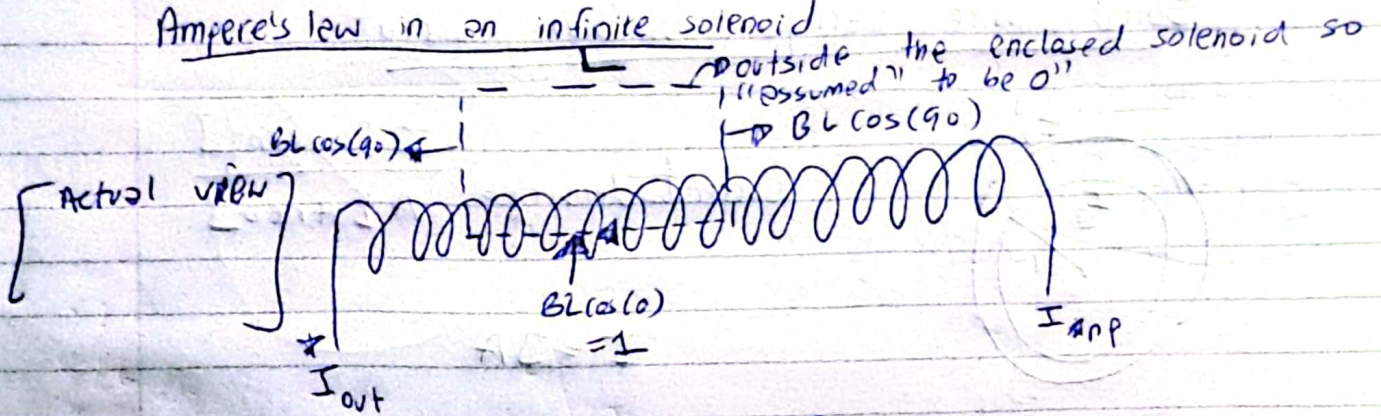 Ampere's law in an infinite solenoid
outside the enclosed solenoid so
"assumed" to be 0"
BL cos(90)
BL cos(90)
[Actual VIEW]
BL cos(0)
=1
I out